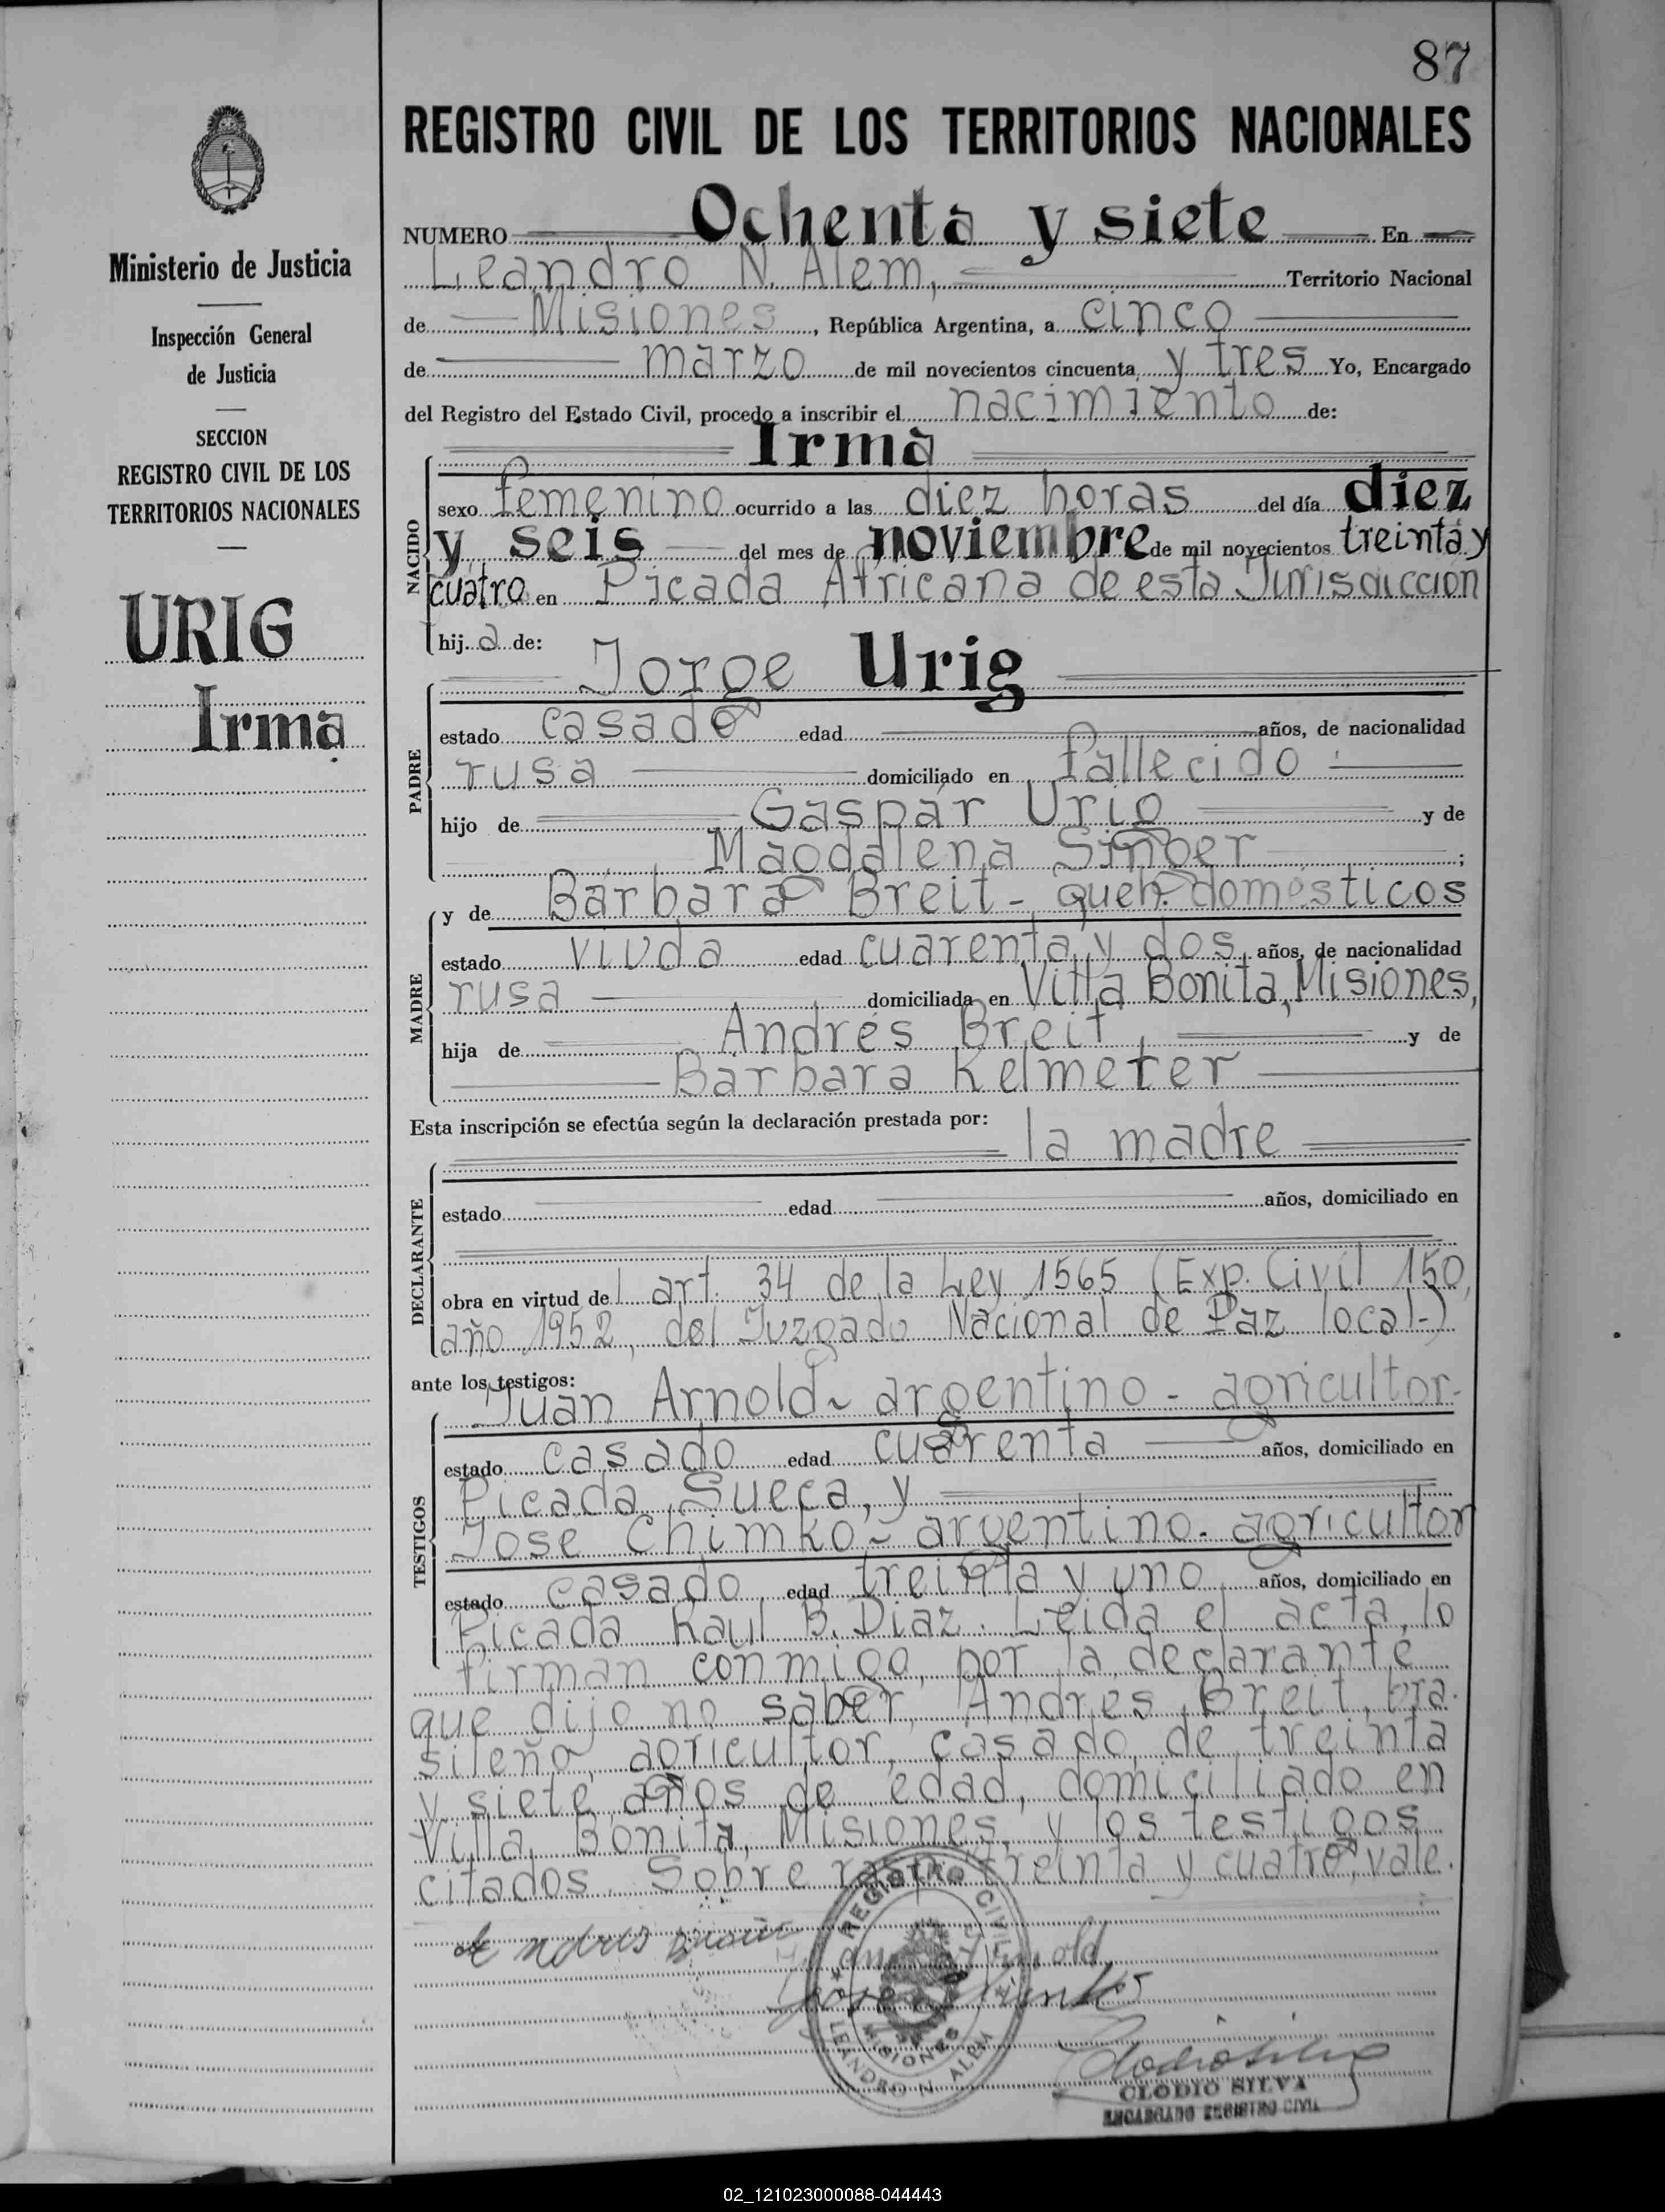 87
REGISTRO CIVIL DE LOS TERRITORIOS NACIONALES
Ministerio de Justicia
Inspección General
de Justicia
SECCION
REGISTRO CIVIL DE LOS
TERRITORIOS NACIONALES
URIG
Irma
NUMERO Ochenta y siete En
Leandro N. Alem, Territorio Nacional
de Misiones, República Argentina, a cinco
de marzo de mil novecientos cincuenta y tres Yo, Encargado
del Registro del Estado Civil, procedo a inscribir el nacimiento de:
NACIDO
Irma
sexo femenino ocurrido a las diez horas del día diez
y seis del mes de noviembre de mil novecientos treinta y
cuatro en Picada Africana de esta Jurisdicción
hija de:
PADRE
Jorge Urig
estado casado edad años, de nacionalidad
rusa domiciliado en fallecido
hijo de Gaspar Urig y de
Magdalena Singer ;
MADRE
y de Bárbara Breit - queh. domésticos
estado viuda edad cuarenta y dos años, de nacionalidad
rusa domiciliada en Villa Bonita, Misiones,
hija de Andrés Breit, y de
Bárbara Kelmeter
Esta inscripción se efectúa según la declaración prestada por:
la madre
DECLARANTE
estado edad años, domiciliado en
obra en virtud del art. 34 de la Ley 1565 (Exp. Civil 150,
año 1952, del Juzgado Nacional de Paz local-)
ante los testigos:
TESTIGOS
Juan Arnold - argentino - agricultor-
estado casado edad cuarenta años, domiciliado en
Picada Sueca, y
José Chimko - argentino - agricultor
estado casado edad treinta y uno años, domiciliado en
Picada Raul B. Diaz. Leida el acta, lo
firman conmigo, por la declarante
que dijo no saber, Andres Breit, bra-
sileño, agricultor, casado, de treinta
y siete años de edad, domiciliado en
Villa Bonita, Misiones, y los testigos
citados. Sobre rasp. treinta y cuatro, vale.
Andres
Juan Arnold
José Chimko
REGISTRO CIVIL
MISIONES
LEANDRO N. ALEM
CLODIO SILVA
ENCARGADO REGISTRO CIVIL
02_121023000088-044443